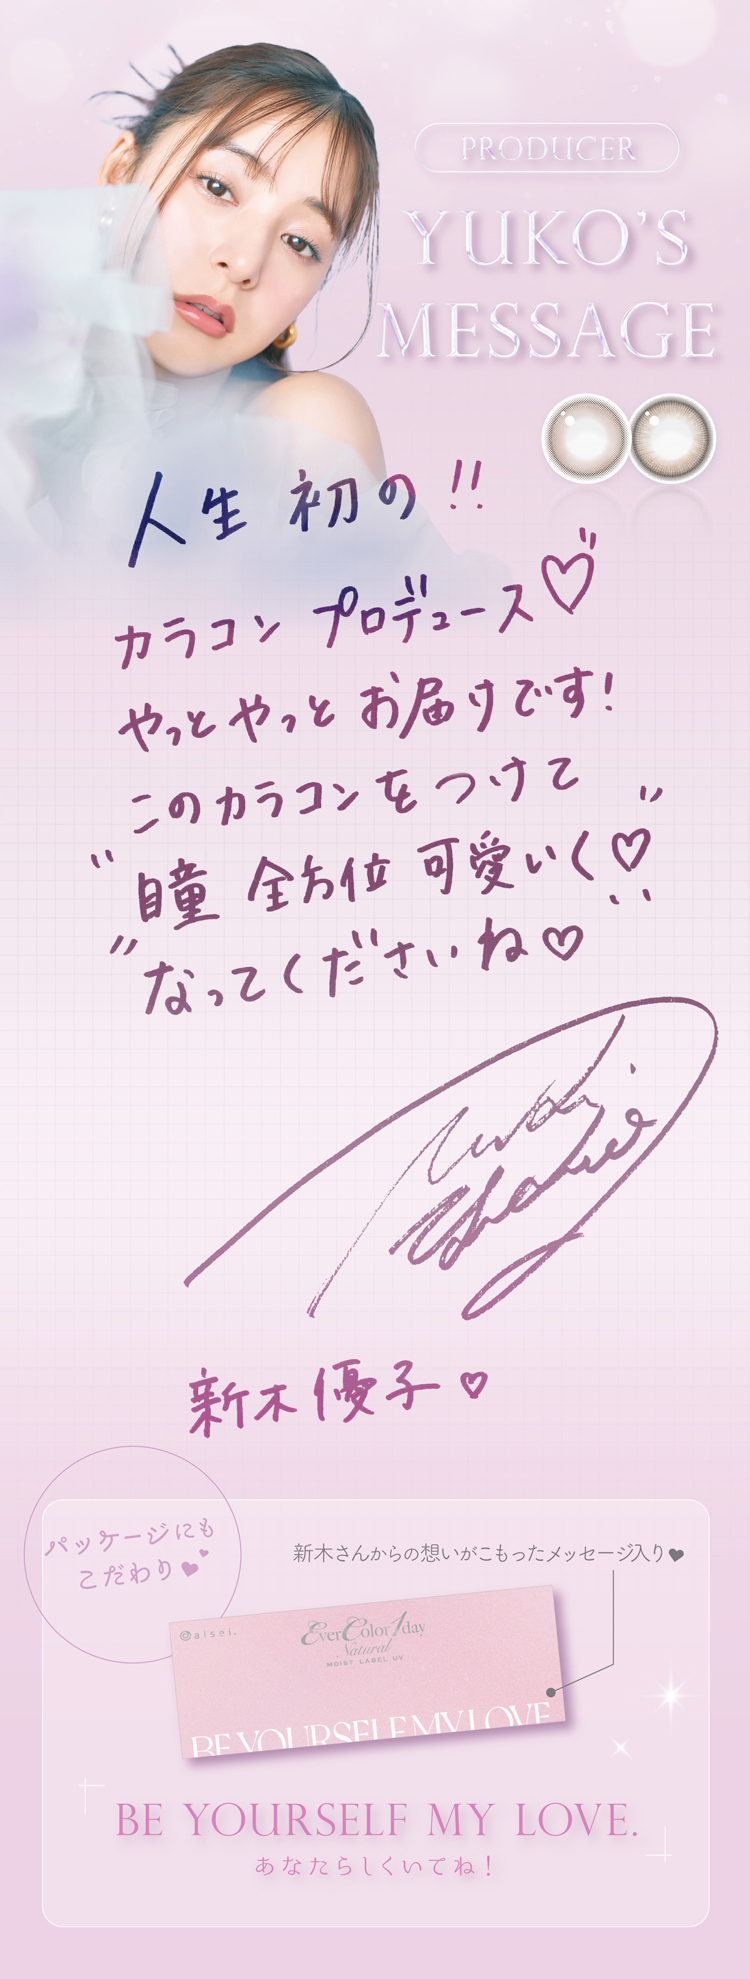 PRODUCER
YUKO'S
MESSAGE
人生 初の!!
カラコン プロデュース♡
やっとやっと お届けです!
このカラコンをつけて
"瞳 全方位 可愛いく♡"
"なってくださいね♡"
新木優子♡
パッケージにも
こだわり♥♥
新木さんからの想いがこもったメッセージ入り♥
@aisei.
EverColor1day
Natural
MOIST LABEL UV
BE YOURSELF MY LOVE
BE YOURSELF MY LOVE.
あなたらしくいてね!